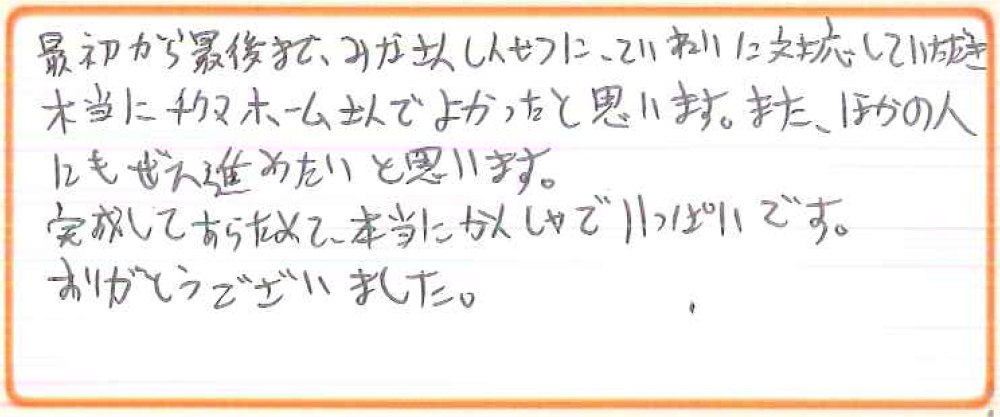 最初から最後まで、みなさんしんせつに、ていねいに対応していただき
本当にチクマホームさんでよかったと思います。また、ほかの人
にもぜひ進めたいと思います。
完成してあらためて、本当にかんしゃでいっぱいです。
ありがとうございました。